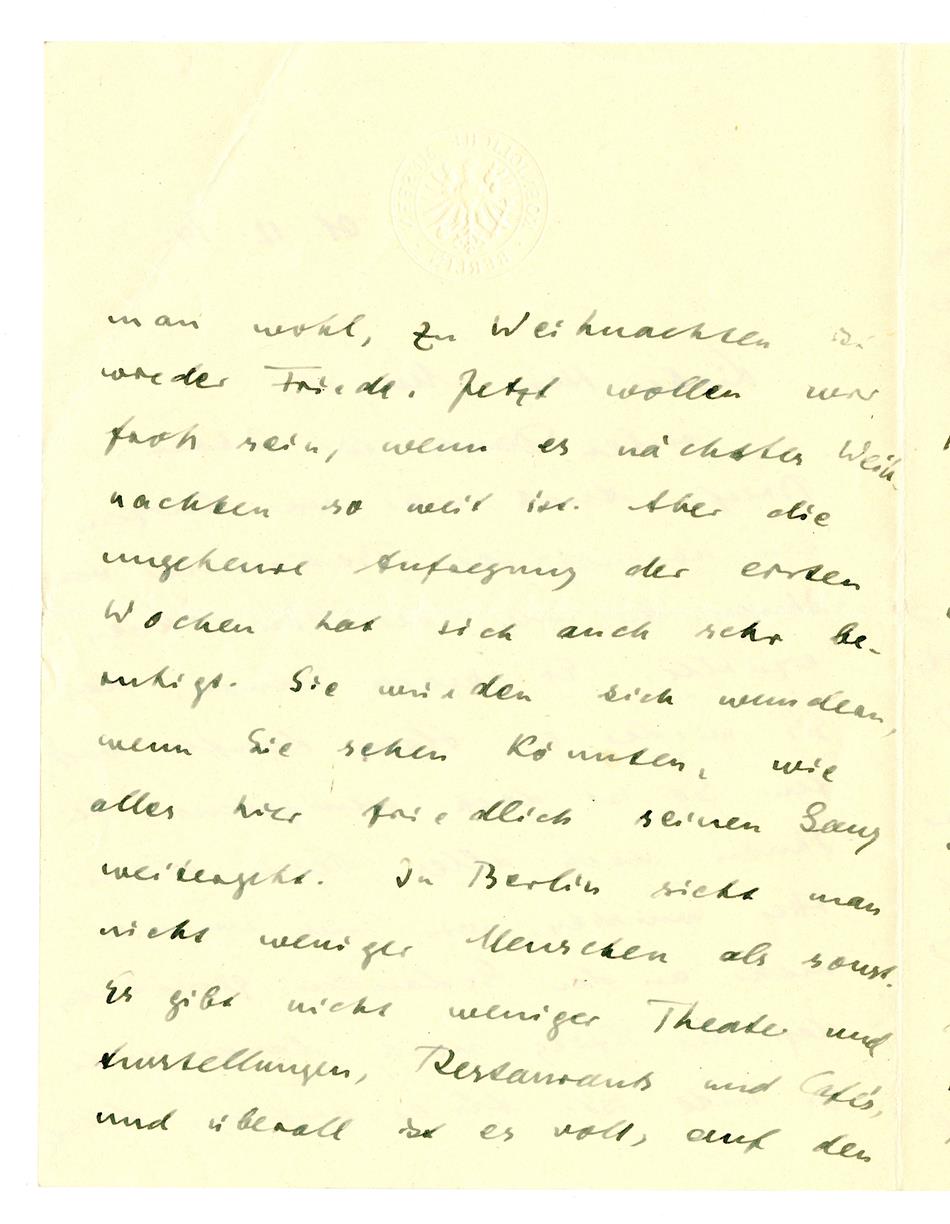 man wohl, zu Weihnachten ist
wieder Friede. Jetzt wollen wir
froh sein, wenn es nächstes Weih-
nachten so weit ist. Aber die
ungeheure Aufregung der ersten
Wochen hat sich auch sehr be-
ruhigt. Sie würden sich wundern,
wenn Sie sehen könnten, wie
alles hier friedlich seinen Gang
weitergeht. In Berlin sieht man
nicht weniger Menschen als sonst.
Es gibt nicht weniger Theater und
Ausstellungen, Restaurants und Cafés,
und überall ist es voll, auf den